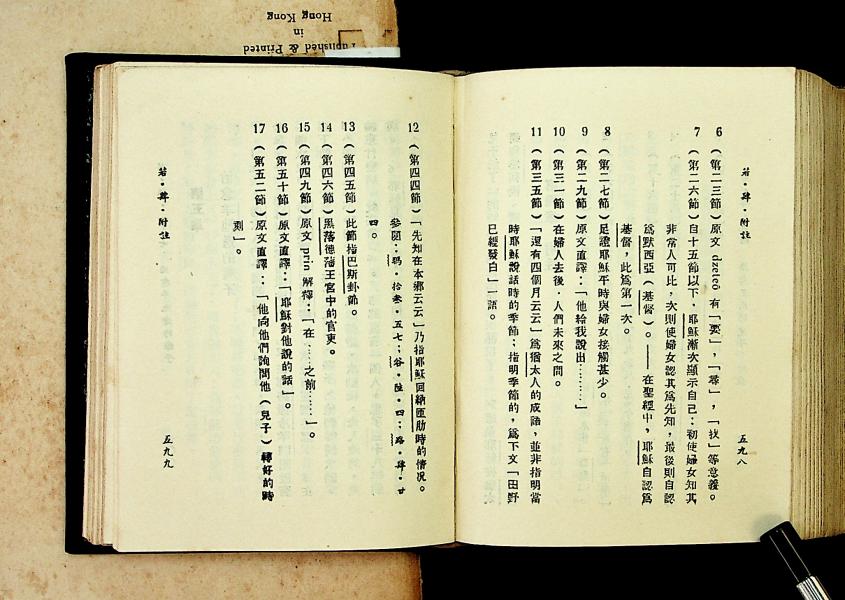 Published & Printed
in
Hong Kong
若・肆・附註
6（第二三節）原文 dzeteô 有「要」，「尋」，「找」等意義。
7（第二六節）自十五節以下，耶穌漸次顯示自己：初使婦女知其
非常人可比，次則使婦女認其爲先知，最後則自認
爲默西亞（基督）。——在聖經中，耶穌自認爲
基督，此爲第一次。
8（第二七節）足證耶穌平時與婦女接觸甚少。
9（第二九節）原文直譯：「他給我說出……」
10（第三一節）在婦人去後，人們未來之間。
11（第三五節）「還有四個月云云」爲猶太人的成語，並非指明當
時耶穌說話時的季節；指明季節的，爲下文「田野
已經發白」一語。
五九八
12（第四四節）「先知在本鄉云云」乃指耶穌回納匝肋時的情況。
參閱：瑪・拾叁・五七；谷・陸・四；路・肆・廿
四。
13（第四五節）此節指巴斯卦節。
14（第四六節）黑落德藩王宮中的官吏。
15（第四九節）原文 prin 解釋：「在……之前……」。
16（第五十節）原文直譯：「耶穌對他說的話」。
17（第五二節）原文直譯：「他向他們詢問他（兒子）轉好的時
刻」。
若・肆・附註
五九九